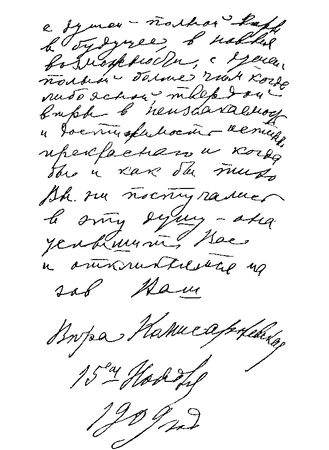 с душой - полной веры
в будущее, в новыя
возможности, с душой
полной более чем когда
либо ясной твердой
веры в неизсякаемость
и достижимость
прекраснаго и когда
бы и как бы тихо
Вы ни постучались
в эту душу - она
услышит Вас
и откликнется на
зов Ваш
Вера Комисаржевская
15го Ноября
1909 год